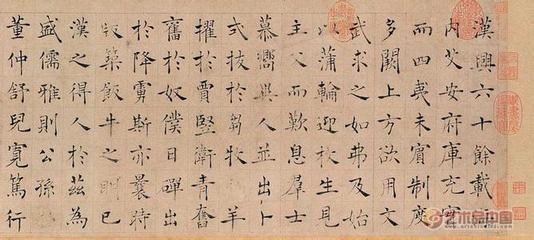 漢興六十餘載
內艾安府庫充實
而四夷未賓制度
多闕上方欲用文
武求之如弗及始
以蒲輪迎枚生見
主父而歎息群士
慕嚮異人並出卜
式拔於芻牧 羊
擢於賈豎衛青奮
奮於奴僕日磾出
於降虜斯亦曩時
版築飯牛之朋已
漢之得人於茲為
盛儒雅則公孫
董仲舒兒寬篤行
艺术品中国